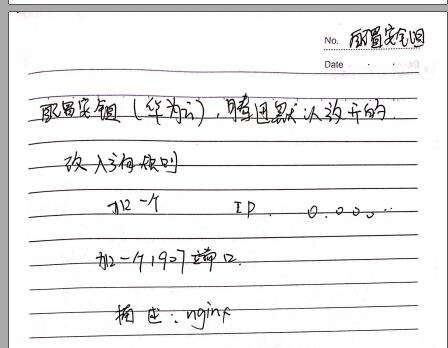 No. 配置安全组
Date
配置安全组（华为云），腾迅默认放开的
改入方向规则
加一个 IP. 0.0.0.0..
加一个 1907 端口.
描述：nginx